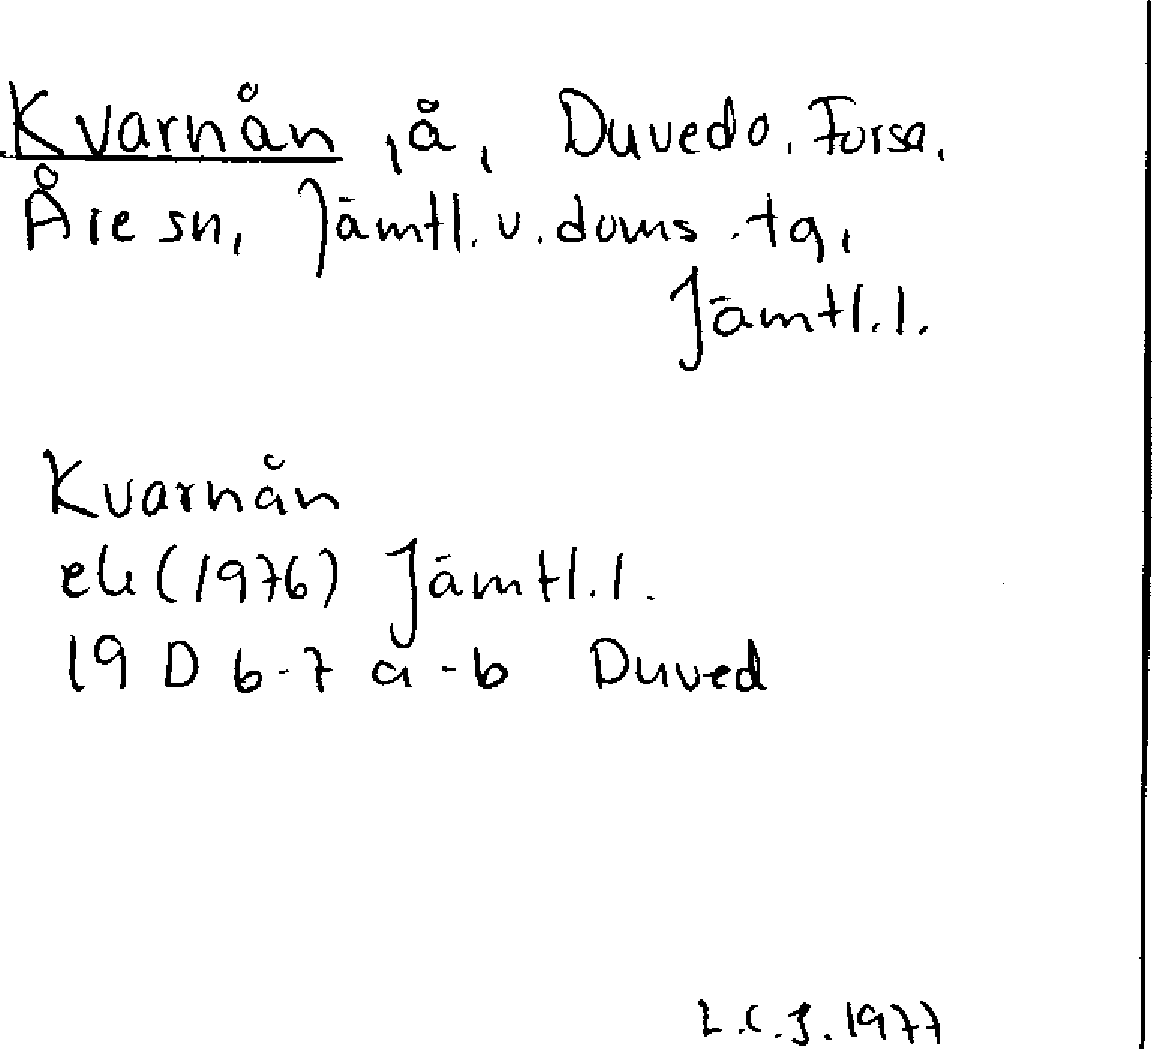 Kvarnån, å, Duved o. Forsa,
Åre sn, Jämtl. v. doms. tg,
Jämtl. l.
Kvarnån
ek (1976) Jämtl. l.
19 D 6-7 a-b Duved
L.C.J. 1977